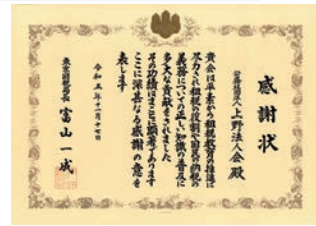 感謝状
公益社団法人 上野法人会 殿
貴会は平素から租税教育の推進に
尽力され租税の役割や国民の納税の
義務についての正しい知識の普及に
多大な貢献をされました
その功績はまことに顕著であります
ここに深甚なる感謝の意を
表します
令和五年十一月十七日
東京国税局長 富山一成